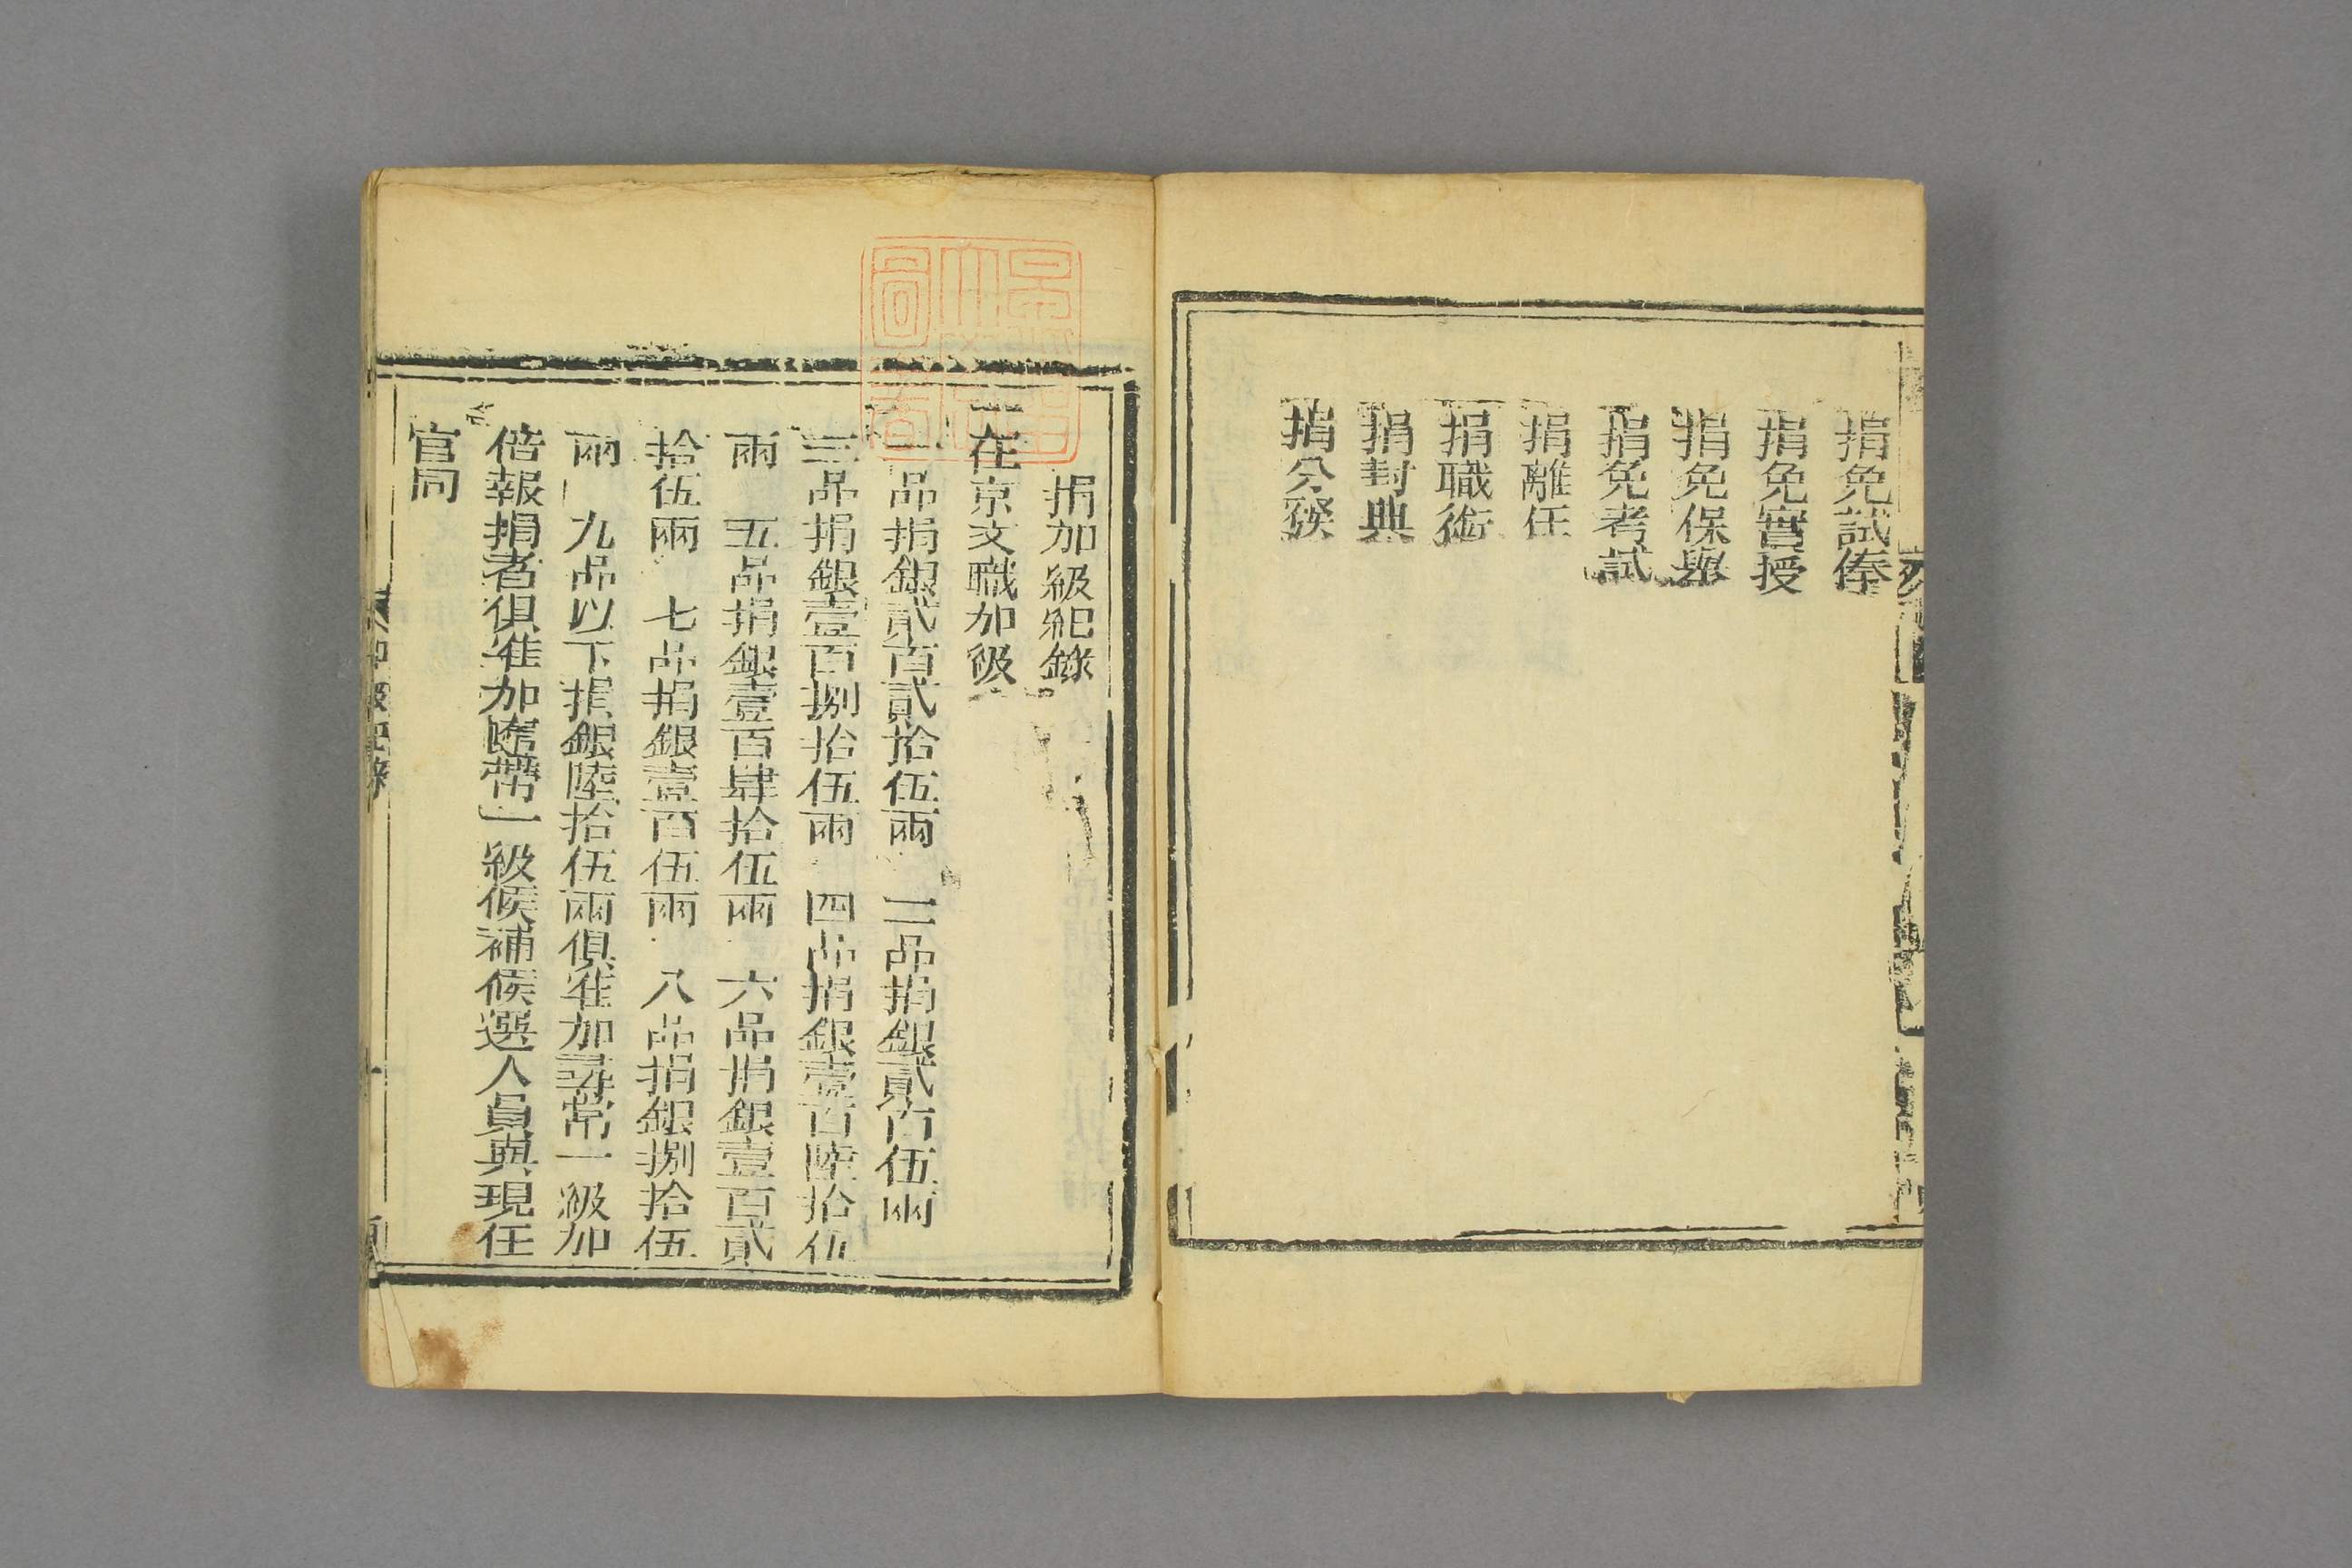 捐免試俸
捐免實授
捐免保舉
捐免考試
捐離任
捐職銜
捐封典
捐分發
捐加級紀錄
在京文職加級
一品捐銀貳百貳拾伍兩　二品捐銀貳百伍兩
三品捐銀壹百捌拾伍兩　四品捐銀壹百陸拾伍
兩　五品捐銀壹百肆拾伍兩　六品捐銀壹百貳
拾伍兩　七品捐銀壹百伍兩　八品捐銀捌拾伍
兩　九品以下捐銀陸拾伍兩俱准加尋常一級加
倍報捐者俱准加隨帶一級候補候選人員與現任
官同